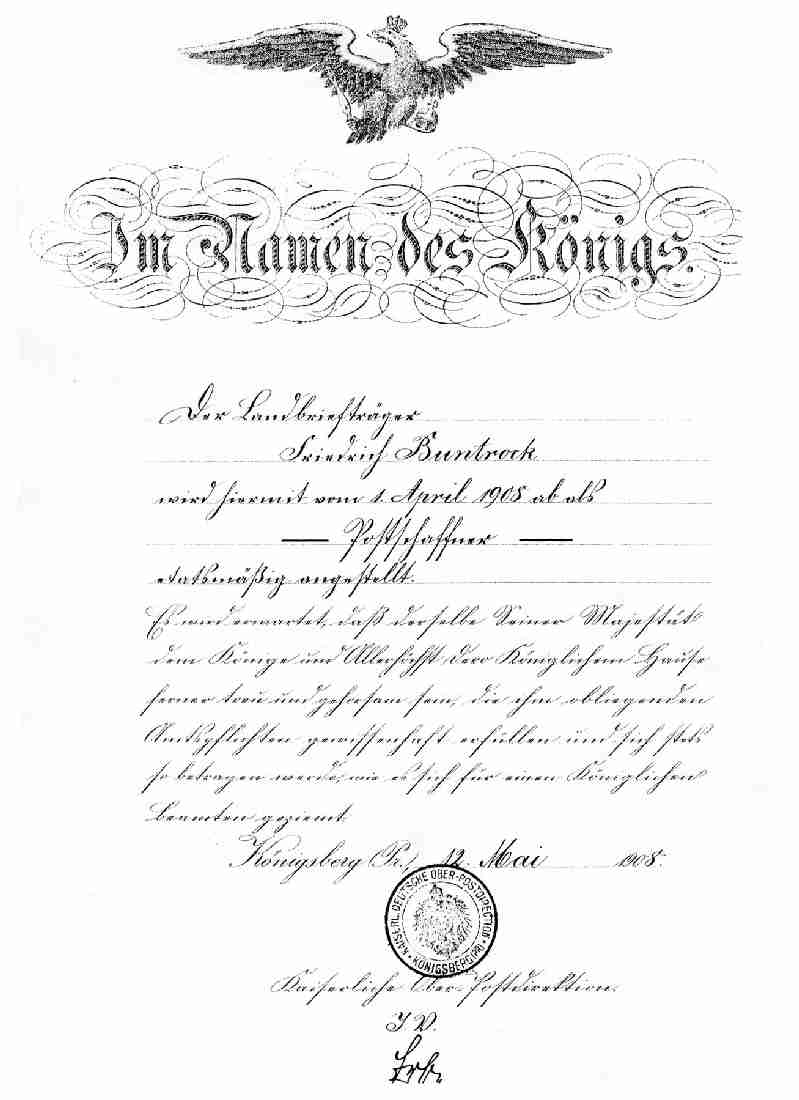 Im Namen des Königs.
Der Landbriefträger
Friedrich Buntrock
wird hiermit vom 1. April 1908 ab als
— Postschaffner —
etatsmäßig angestellt.
Es wird erwartet, daß derselbe Seiner Majestät
dem Könige und Allerhöchst dero Königlichem Hause
ferner treu und gehorsam sein, die ihm obliegenden
Amtspflichten gewissenhaft erfüllen und sich stets
so betragen werde, wie es sich für einen Königlichen
Beamten geziemt.
Königsberg (Pr.), 12. Mai 1908.
KAISERL. DEUTSCHE OBER-POSTDIRECTION
KÖNIGSBERG (PR)
Kaiserliche Ober-Postdirektion.
I. V.